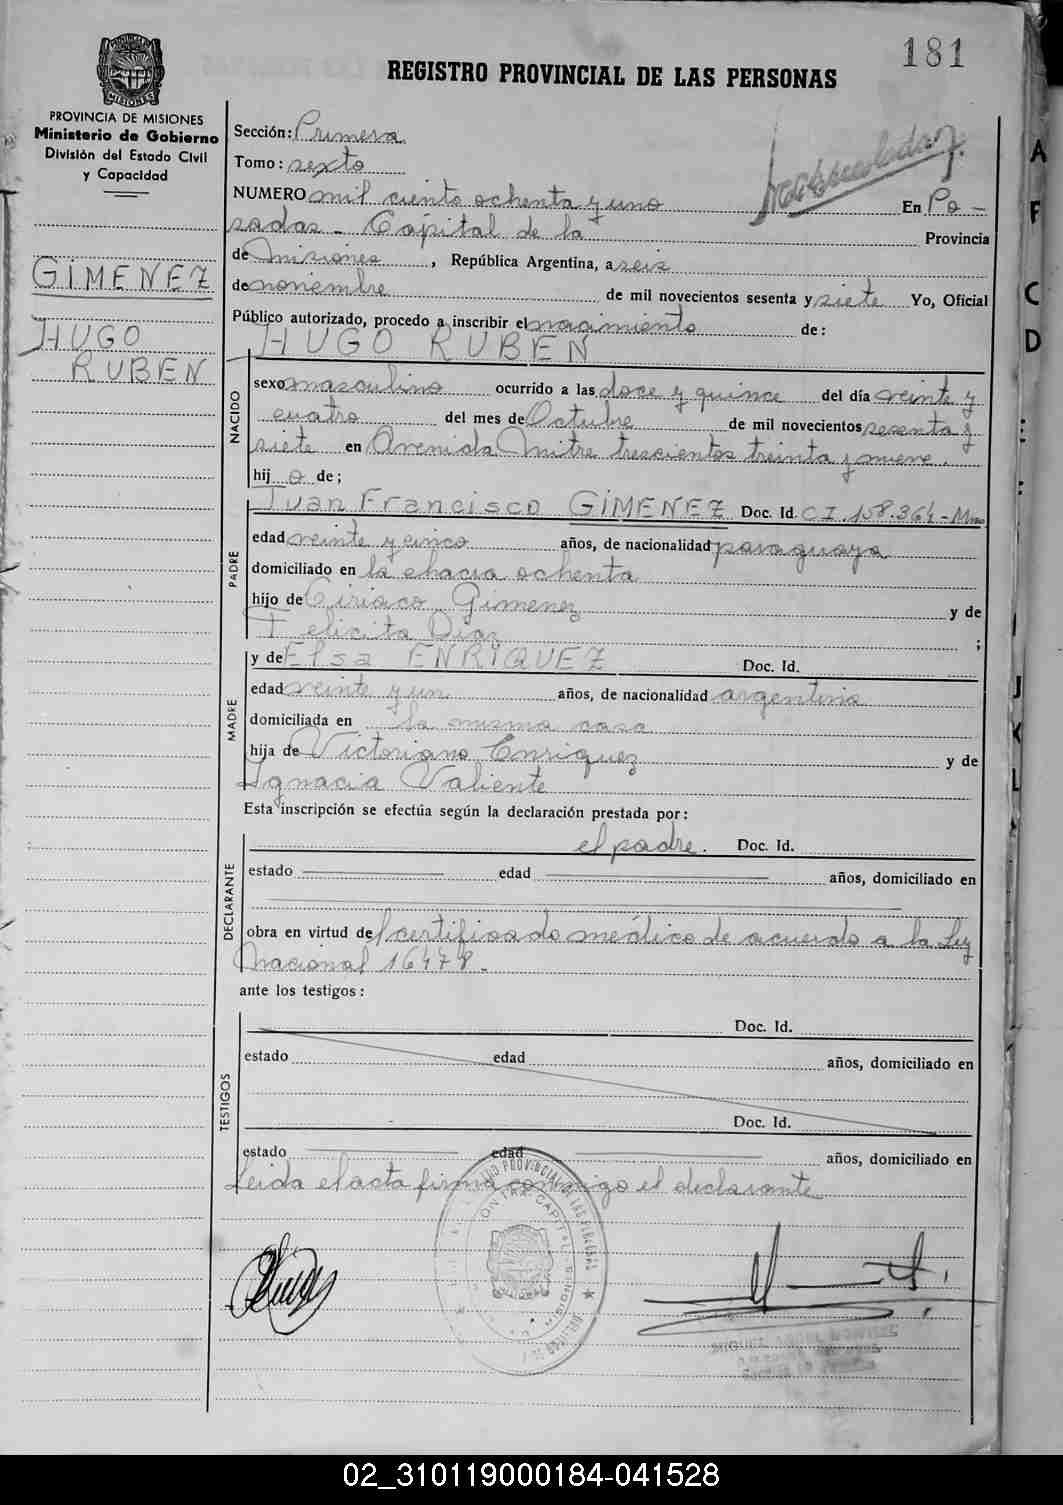 181
REGISTRO PROVINCIAL DE LAS PERSONAS
MISIONES
PROVINCIA DE MISIONES
Ministerio de Gobierno
División del Estado Civil
y Capacidad
GIMENEZ
HUGO
RUBEN
Sección: Primera
Tomo: sexto
NUMERO mil ciento ochenta y uno En Po-
sadas - Capital de la Provincia
de Misiones, República Argentina, a seis
de noviembre de mil novecientos sesenta y siete Yo, Oficial
Público autorizado, procedo a inscribir el nacimiento de:
HUGO RUBEN
NACIDO
sexo masculino ocurrido a las doce y quince del día veinte y
cuatro del mes de Octubre de mil novecientos sesenta y
siete en Avenida Mitre trescientos treinta y nueve.
hijo de;
PADRE
Juan Francisco GIMENEZ Doc. Id. CI 158.364-Mnes
edad veinte y cinco años, de nacionalidad paraguaya
domiciliado en la chacra ochenta
hijo de Ciriaco Gimenez y de
Felicita Diaz ;
MADRE
y de Elsa ENRIQUEZ Doc. Id.
edad veinte y un años, de nacionalidad argentina
domiciliada en la misma casa
hija de Victoriano Enriquez y de
Ignacia Valiente
Esta inscripción se efectúa según la declaración prestada por:
DECLARANTE
el padre. Doc. Id.
estado edad años, domiciliado en
obra en virtud del certificado médico de acuerdo a la Ley
Nacional 16478.
ante los testigos:
TESTIGOS
Doc. Id.
estado edad años, domiciliado en
Doc. Id.
estado edad años, domiciliado en
Leida el acta firma conmigo el declarante
A
F
C
D
J
K
L
02_310119000184-041528